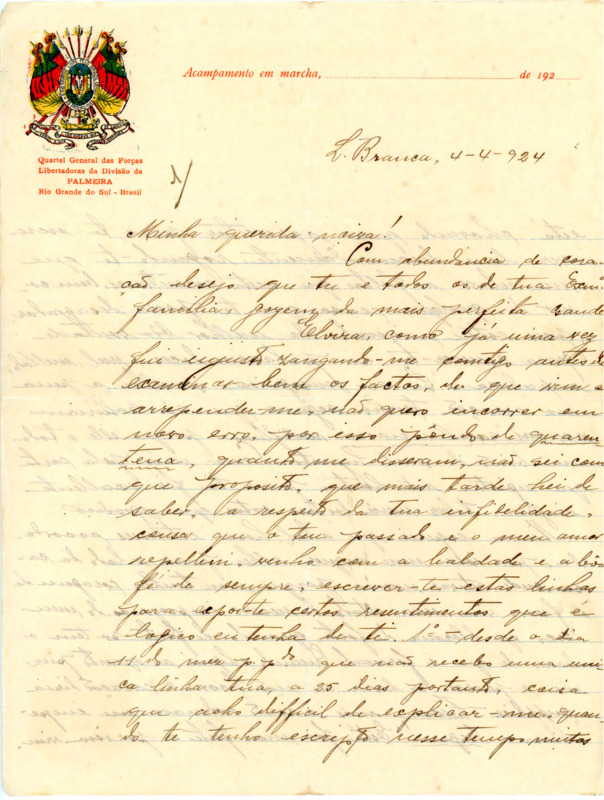 Acampamento em marcha, de 192
Quartel General das Forças
Libertadoras da Divisão da
PALMEIRA
Rio Grande do Sul - Brasil
L. Branca, 4-4-924
1/
Minha querida noiva!
Com abundancia de cora
ção desejo que tu e todos os de tua Exmª
familia, gozem da mais perfeita saude
Elvira, como já uma vez
fui injusto zangando-me comtigo antes de
examinar bem os factos, do que vim a
arrepender-me, não quero incorrer em
novo erro, por isso pondo de quaren
tena, quanto me disseram, não sei com
que proposito, que mais tarde hei de
saber, a respeito da tua infidelidade,
cousa que o teu passado e o meu amor
repellem, venho com a lealdade e a bôa
fé de sempre, escrever-te estas linhas
para expor-te certos resentimentos que é
logico eu tenha de ti. 1º- desde o dia
11 do mez p.pdo que não recebo uma uni
ca linha tua, a 25 dias portanto, coisa
que acho difficil de explicar-me, quan
do te tenho escripto nesse tempo muitas